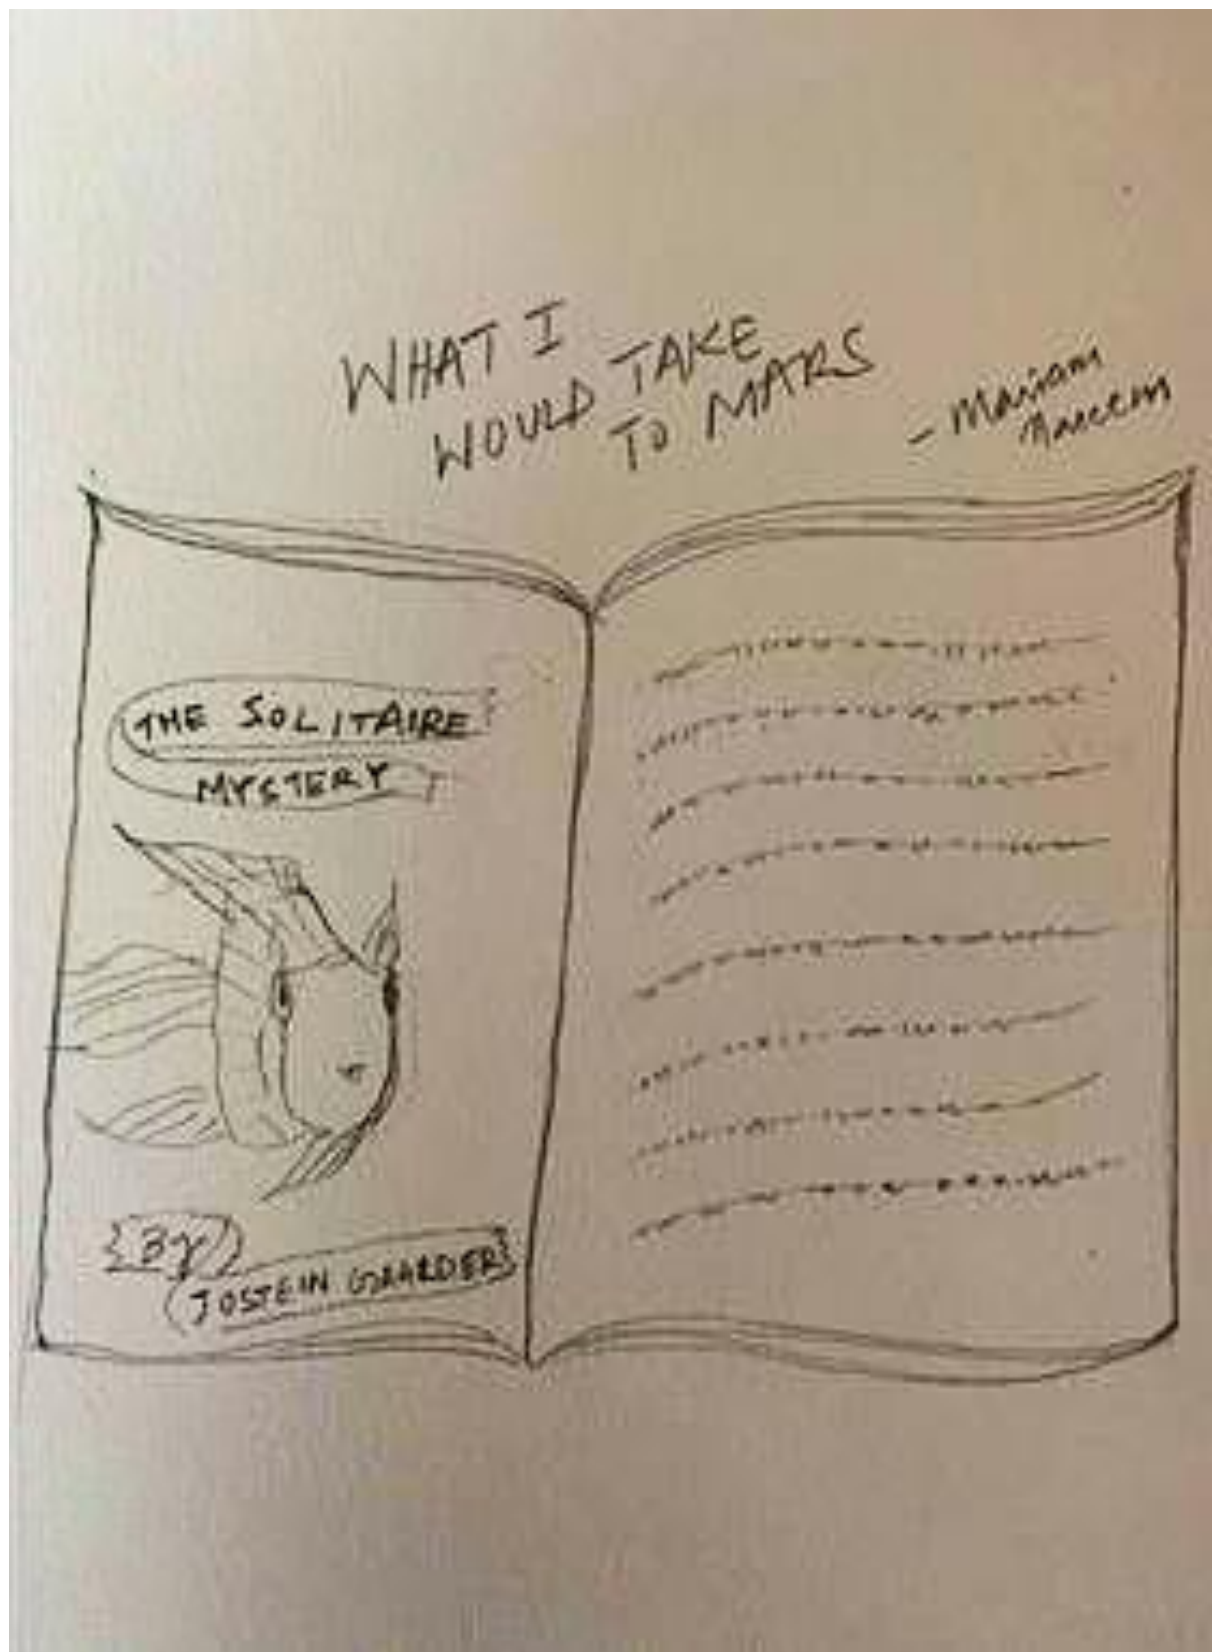 WHAT I
WOULD TAKE
TO MARS
- Mariam
Naeem
THE SOLITAIRE
MYSTERY
By
JOSTEIN GAARDER